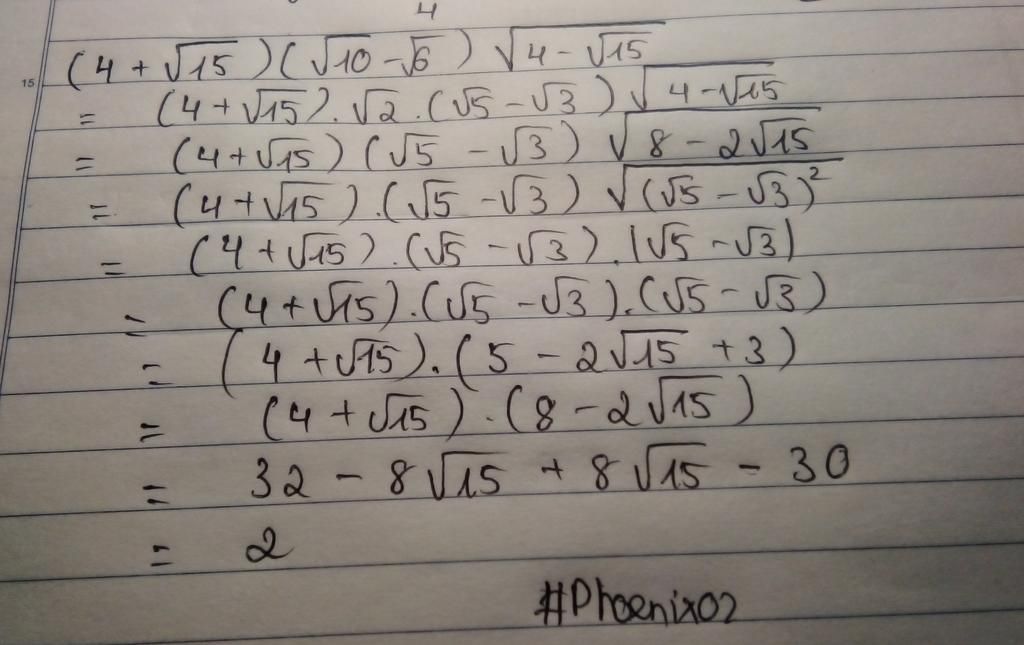 4
15
(4 + √15)(√10 - √6) √(4 - √15)
= (4 + √15).√2.(√5 - √3)√(4 - √15)
= (4 + √15)(√5 - √3) √(8 - 2√15)
= (4 + √15).(√5 - √3) √((√5 - √3)²)
= (4 + √15).(√5 - √3).|√5 - √3|
= (4 + √15).(√5 - √3).(√5 - √3)
= (4 + √15).(5 - 2√15 + 3)
= (4 + √15).(8 - 2√15)
= 32 - 8√15 + 8√15 - 30
= 2
#Phoenix02